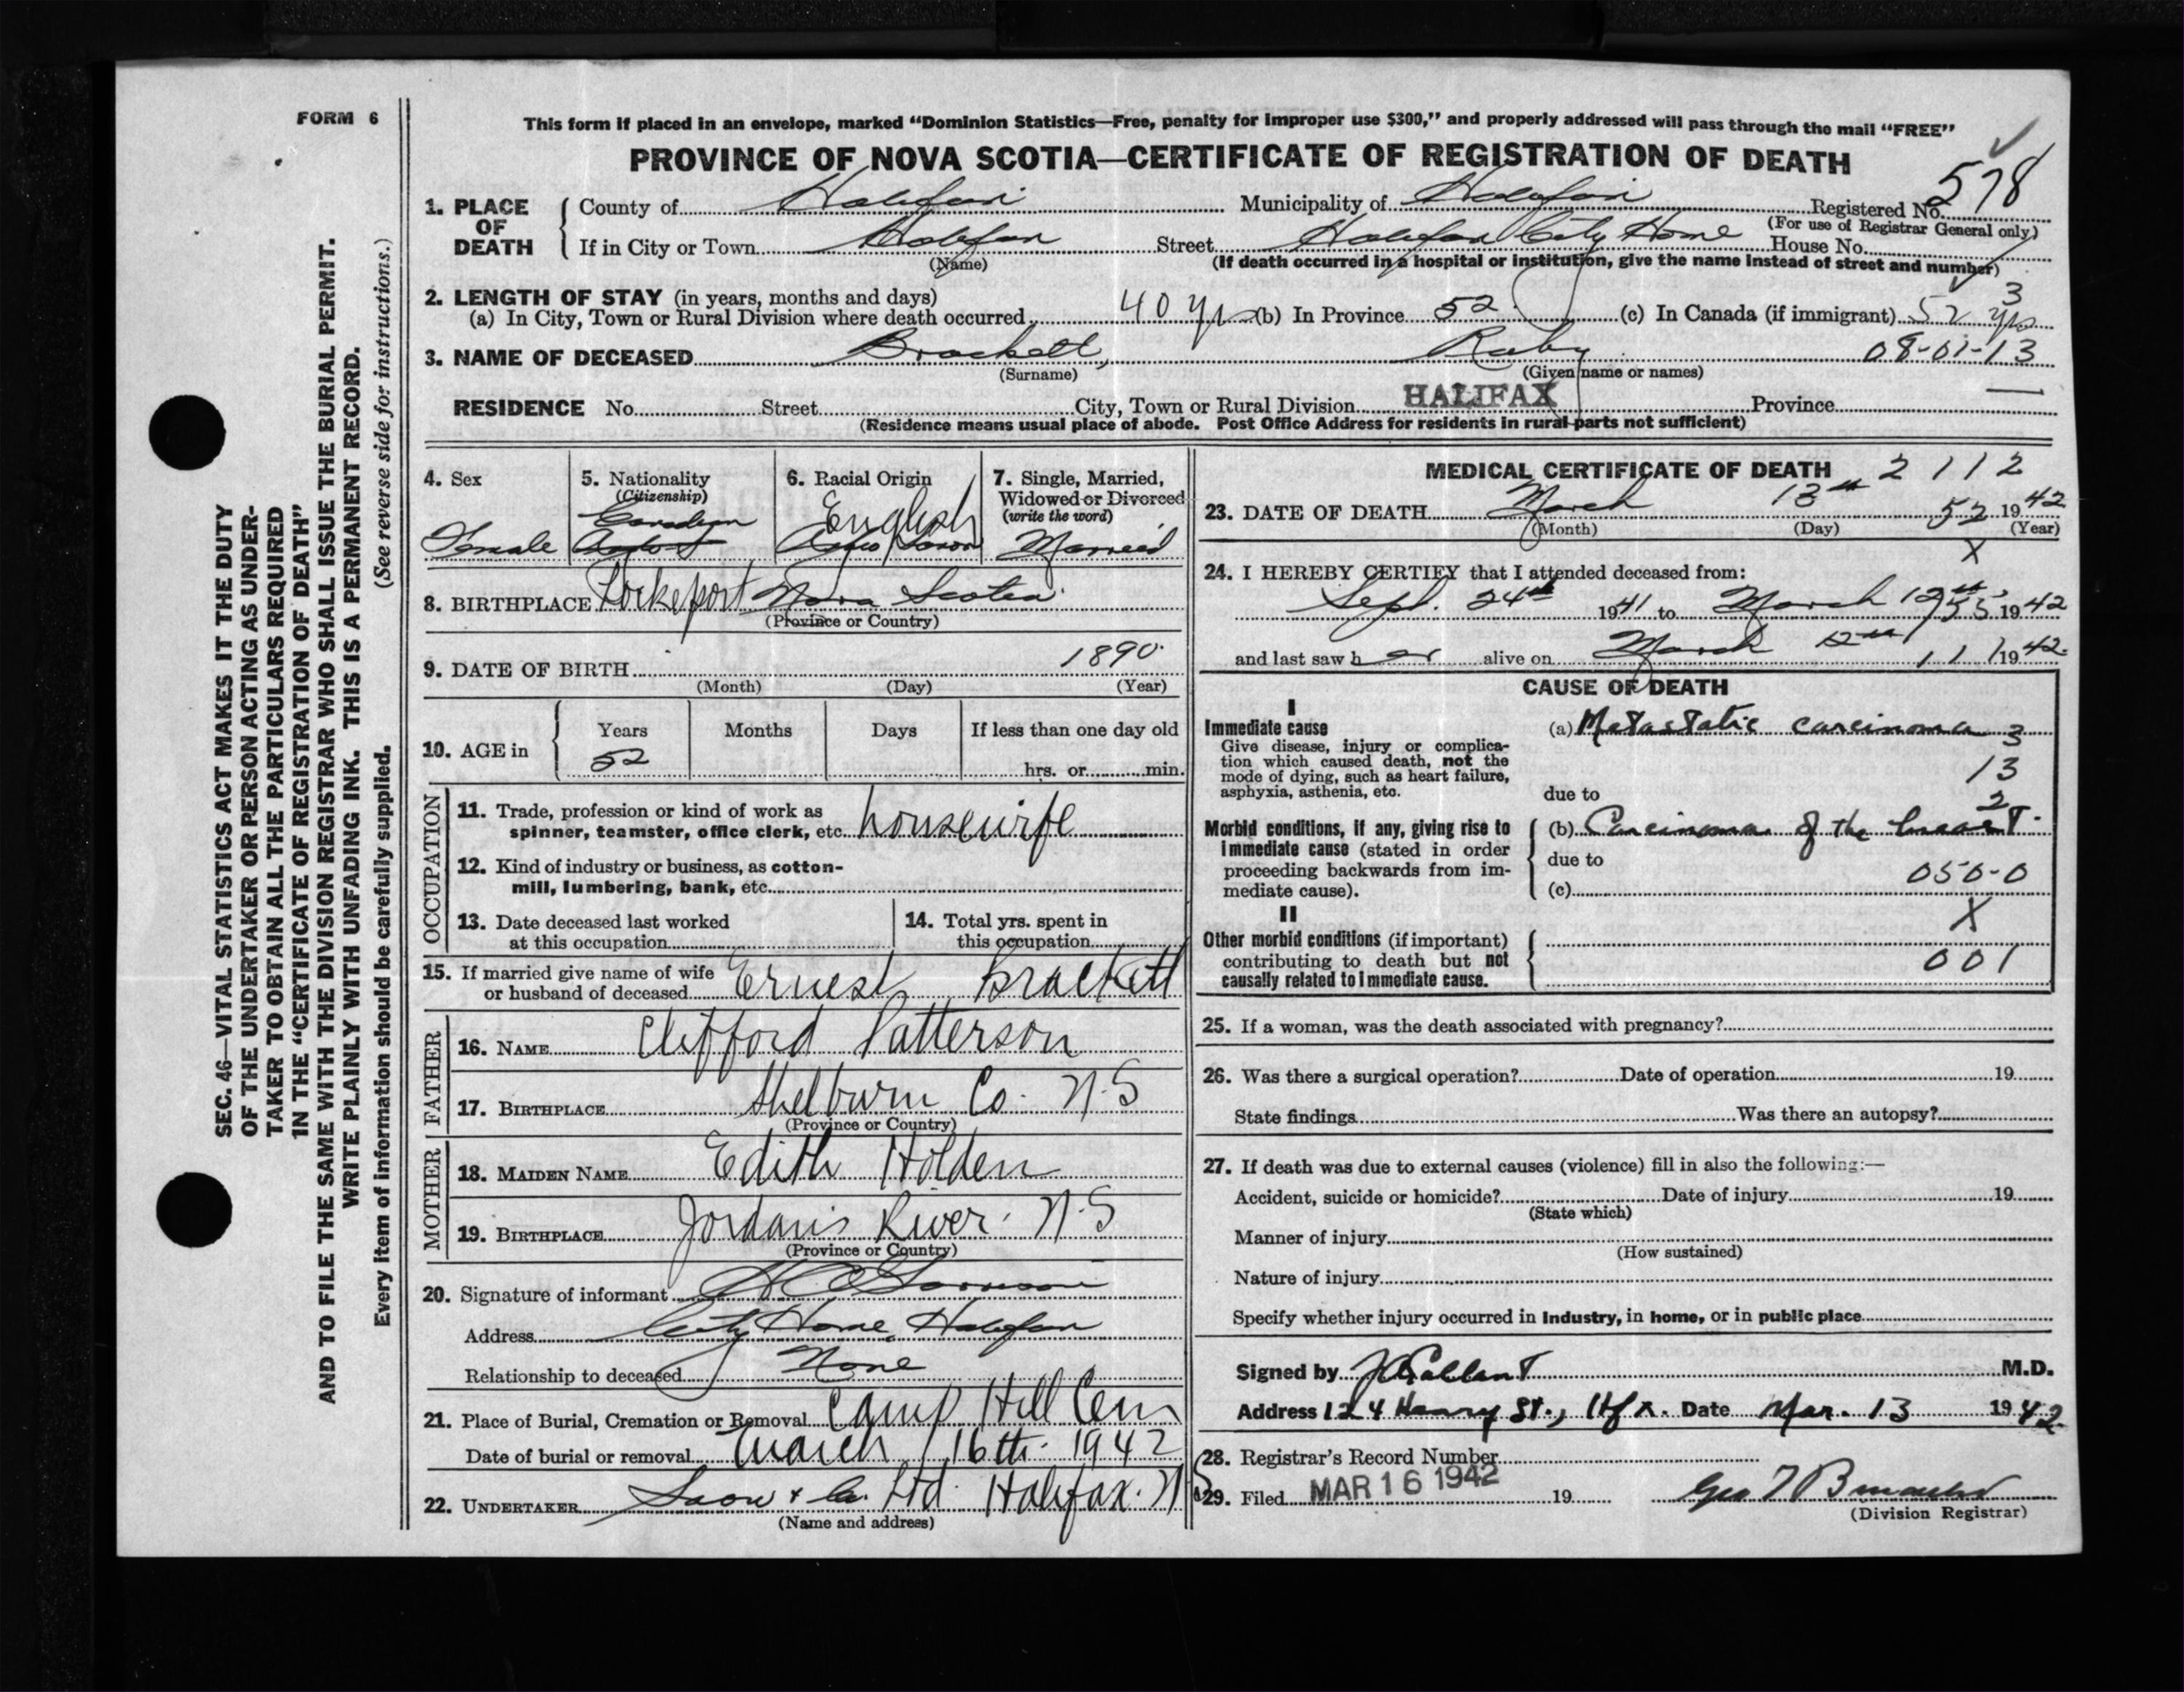 FORM 6
This form if placed in an envelope, marked “Dominion Statistics—Free, penalty for improper use $300,” and properly addressed will pass through the mail “FREE”
PROVINCE OF NOVA SCOTIA—CERTIFICATE OF REGISTRATION OF DEATH
578
1. PLACE OF DEATH
County of Halifax Municipality of Halifax Registered No.
(For use of Registrar General only)
If in City or Town Halifax Street Halifax City Home House No.
(Name) (If death occurred in a hospital or institution, give the name instead of street and number)
2. LENGTH OF STAY (in years, months and days) 3
(a) In City, Town or Rural Division where death occurred 40 yrs (b) In Province 52 (c) In Canada (if immigrant) 52 yrs
3. NAME OF DECEASED Brackett, Ruby 08-01-13
(Surname) (Given name or names)
RESIDENCE No. Street City, Town or Rural Division HALIFAX Province —
(Residence means usual place of abode. Post Office Address for residents in rural parts not sufficient)
4. Sex
Female
5. Nationality
(Citizenship)
Canadian
6. Racial Origin
English
Anglo Saxon
7. Single, Married,
Widowed or Divorced
(write the word)
Married
8. BIRTHPLACE Lockeport Nova Scotia
(Province or Country)
9. DATE OF BIRTH 1890
(Month) (Day) (Year)
10. AGE in
Years Months Days If less than one day old
52 hrs. or min.
OCCUPATION
11. Trade, profession or kind of work as
spinner, teamster, office clerk, etc. housewife
12. Kind of industry or business, as cotton-
mill, lumbering, bank, etc.
13. Date deceased last worked
at this occupation
14. Total yrs. spent in
this occupation
15. If married give name of wife
or husband of deceased Ernest Brackett
FATHER
16. NAME Clifford Patterson
17. BIRTHPLACE Shelburn Co. N.S
(Province or Country)
MOTHER
18. MAIDEN NAME Edith Holden
19. BIRTHPLACE Jordans River. N.S
(Province or Country)
20. Signature of informant
Address City Home, Halifax
Relationship to deceased None
21. Place of Burial, Cremation or Removal Camp Hill Cem
Date of burial or removal March 16th. 1942
22. UNDERTAKER Snow & Co. Ltd. Halifax. N.S
(Name and address)
MEDICAL CERTIFICATE OF DEATH 2112
23. DATE OF DEATH March 13th 52 1942
(Month) (Day) (Year)
X
24. I HEREBY CERTIFY that I attended deceased from:
Sept. 24th 1941 to March 12th 55 1942
and last saw her alive on March 12th 111 1942
CAUSE OF DEATH
I
Immediate cause (a) Metastatic carcinoma 3
Give disease, injury or complica-
tion which caused death, not the
mode of dying, such as heart failure,
asphyxia, asthenia, etc.
13
due to
2
Morbid conditions, if any, giving rise to
immediate cause (stated in order
proceeding backwards from im-
mediate cause).
(b) Carcinoma of the breast.
due to
050-0
(c)
II X
Other morbid conditions (if important)
contributing to death but not
causally related to immediate cause.
001
25. If a woman, was the death associated with pregnancy?
26. Was there a surgical operation? Date of operation 19
State findings Was there an autopsy?
27. If death was due to external causes (violence) fill in also the following:—
Accident, suicide or homicide? Date of injury 19
(State which)
Manner of injury
(How sustained)
Nature of injury
Specify whether injury occurred in industry, in home, or in public place
Signed by M.D.
Address 124 Henry St., Hfx. Date Mar. 13 1942
28. Registrar's Record Number
29. Filed MAR 16 1942 19
(Division Registrar)
SEC. 46—VITAL STATISTICS ACT MAKES IT THE DUTY
OF THE UNDERTAKER OR PERSON ACTING AS UNDER-
TAKER TO OBTAIN ALL THE PARTICULARS REQUIRED
IN THE “CERTIFICATE OF REGISTRATION OF DEATH”
AND TO FILE THE SAME WITH THE DIVISION REGISTRAR WHO SHALL ISSUE THE BURIAL PERMIT.
WRITE PLAINLY WITH UNFADING INK. THIS IS A PERMANENT RECORD.
Every item of information should be carefully supplied. (See reverse side for instructions.)